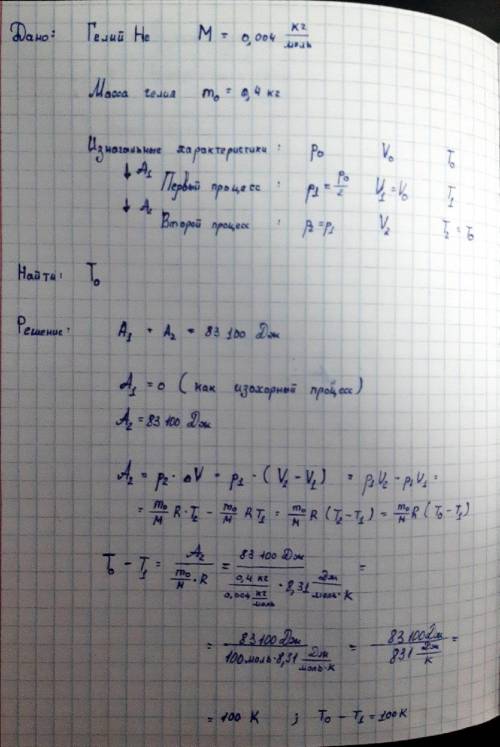 Дано: Гелий He M = 0,004 кг/моль
Масса гелия m₀ = 0,4 кг
Изначальные характеристики: p₀ V₀ T₀
↓ A₁
Первый процесс: p₁ = p₀/2 V₁ = V₀ T₁
↓ A₂
Второй процесс: p₂ = p₁ V₂ T₂ = T₀
Найти: T₀
Решение: A₁ + A₂ = 83 100 Дж
A₁ = 0 (как изохорный процесс)
A₂ = 83 100 Дж
A₂ = p₂ · ΔV = p₁ · (V₂ - V₁) = p₁V₂ - p₁V₁ =
= m₀/M R · T₂ - m₀/M R T₁ = m₀/M R (T₂ - T₁) = m₀/M R (T₀ - T₁)
T₀ - T₁ = A₂/(m₀/M · R) = 83 100 Дж/(0,4 кг/0,004 кг/моль · 8,31 Дж/моль·К) =
= 83100 Дж/(100 моль · 8,31 Дж/моль·К) = 83100 Дж/(831 Дж/К) =
= 100 К ; T₀ - T₁ = 100 К